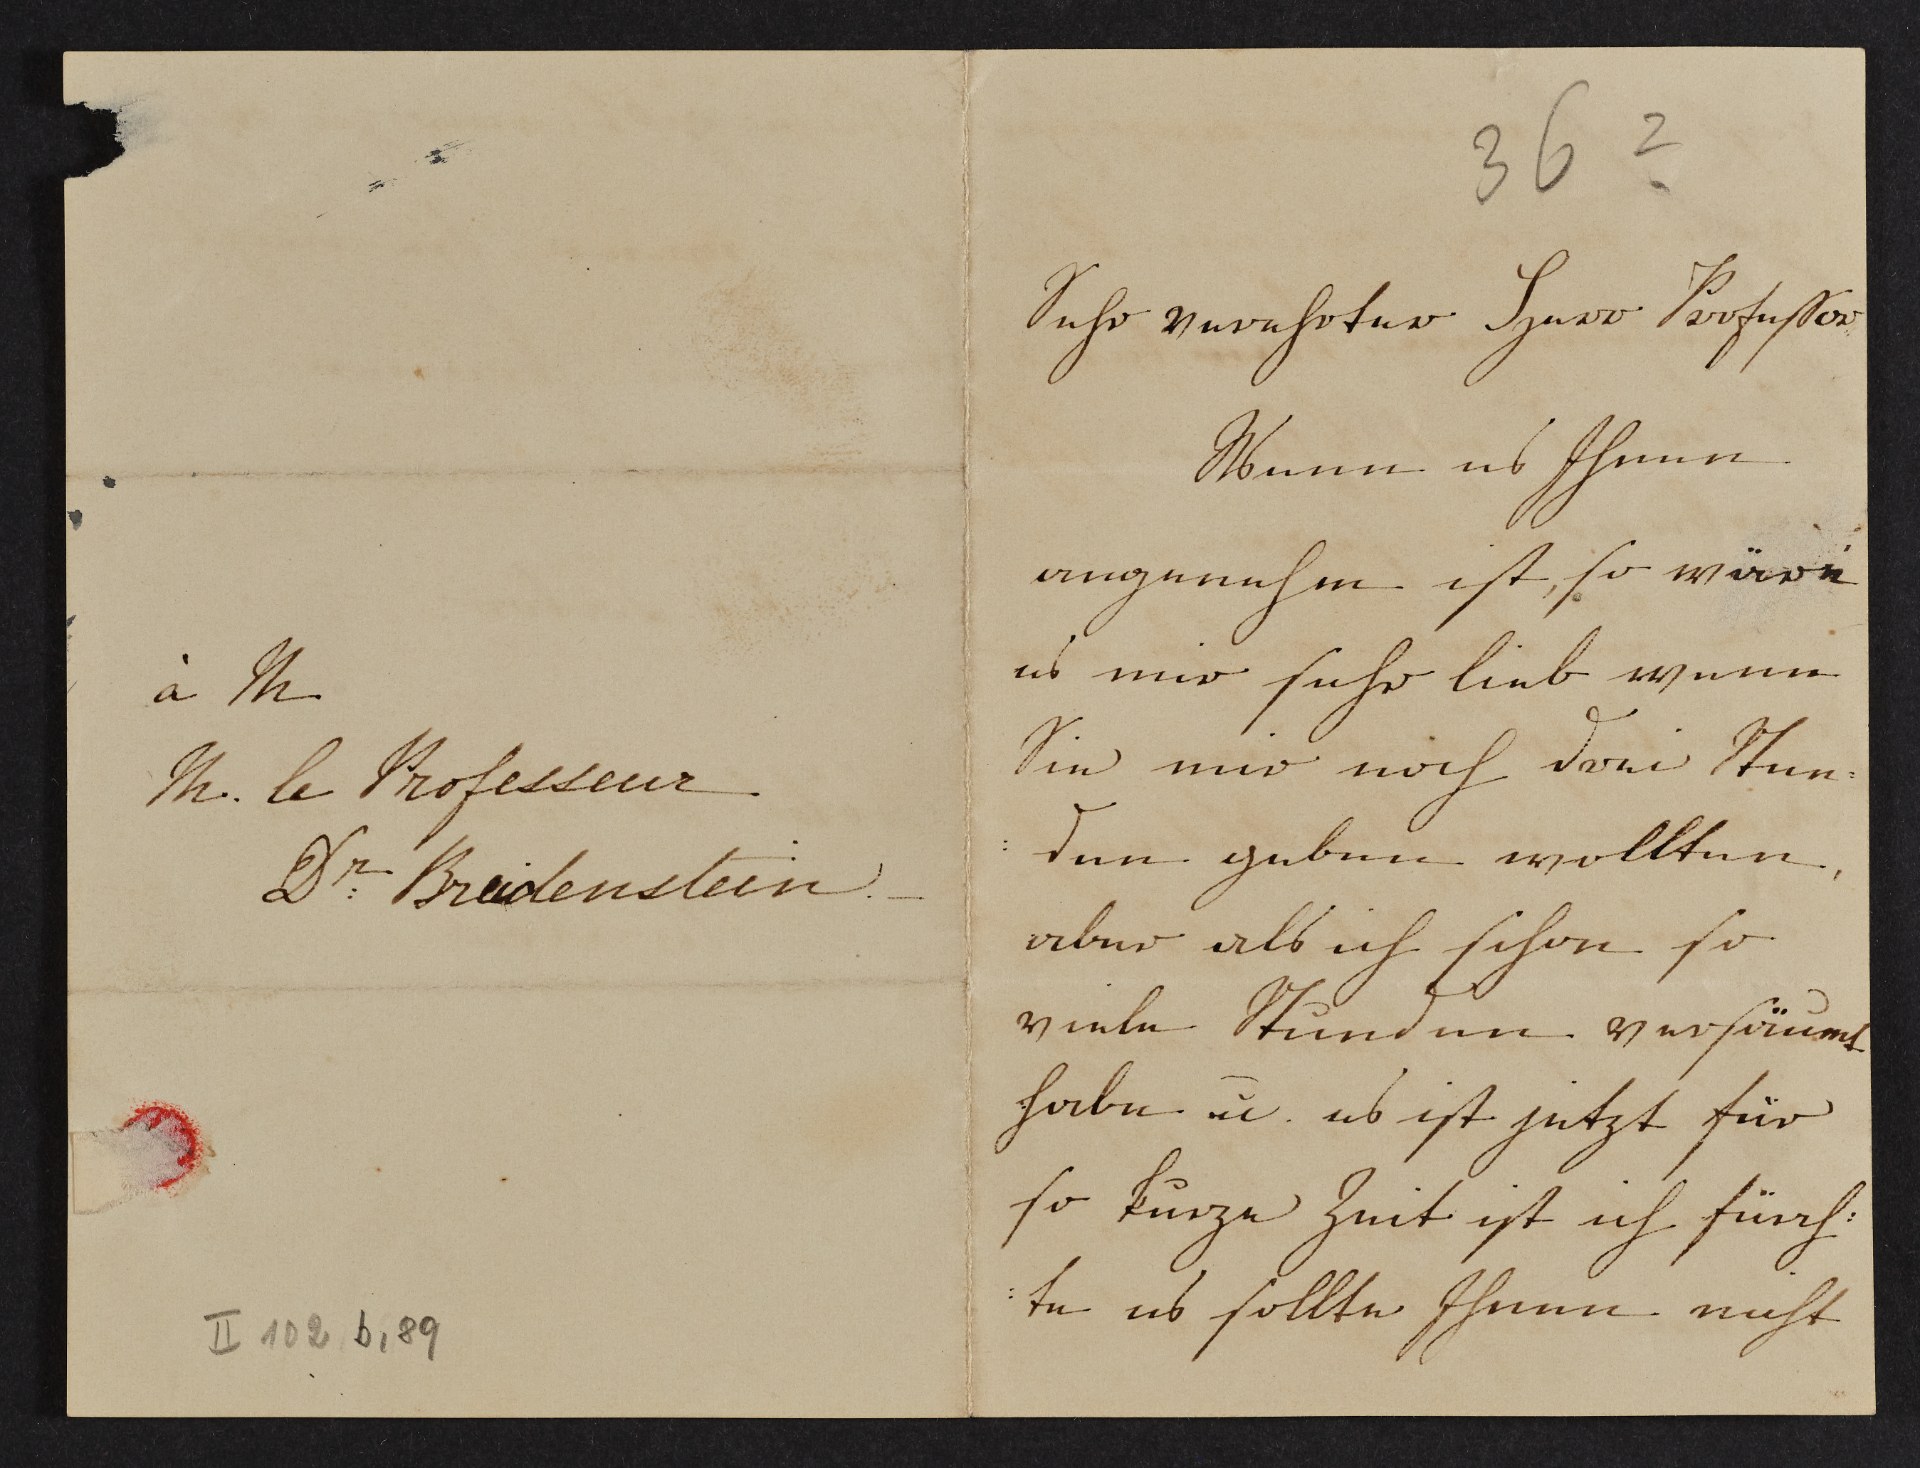 à M
M. le Professeur
Dr. Breidenstein. —
II 102 b, 89
36 ?
Sehr verehrter Herr Professor
Wenn es Ihnen
angenehm ist, so wäre
es mir sehr lieb wenn
Sie mir noch drei Stun:
:den geben wollten,
aber als ich schon so
viele Stunden versäumt
habe u. es ist jetzt für
so kurze Zeit ist ich fürch:
:te es sollte Ihnen nicht